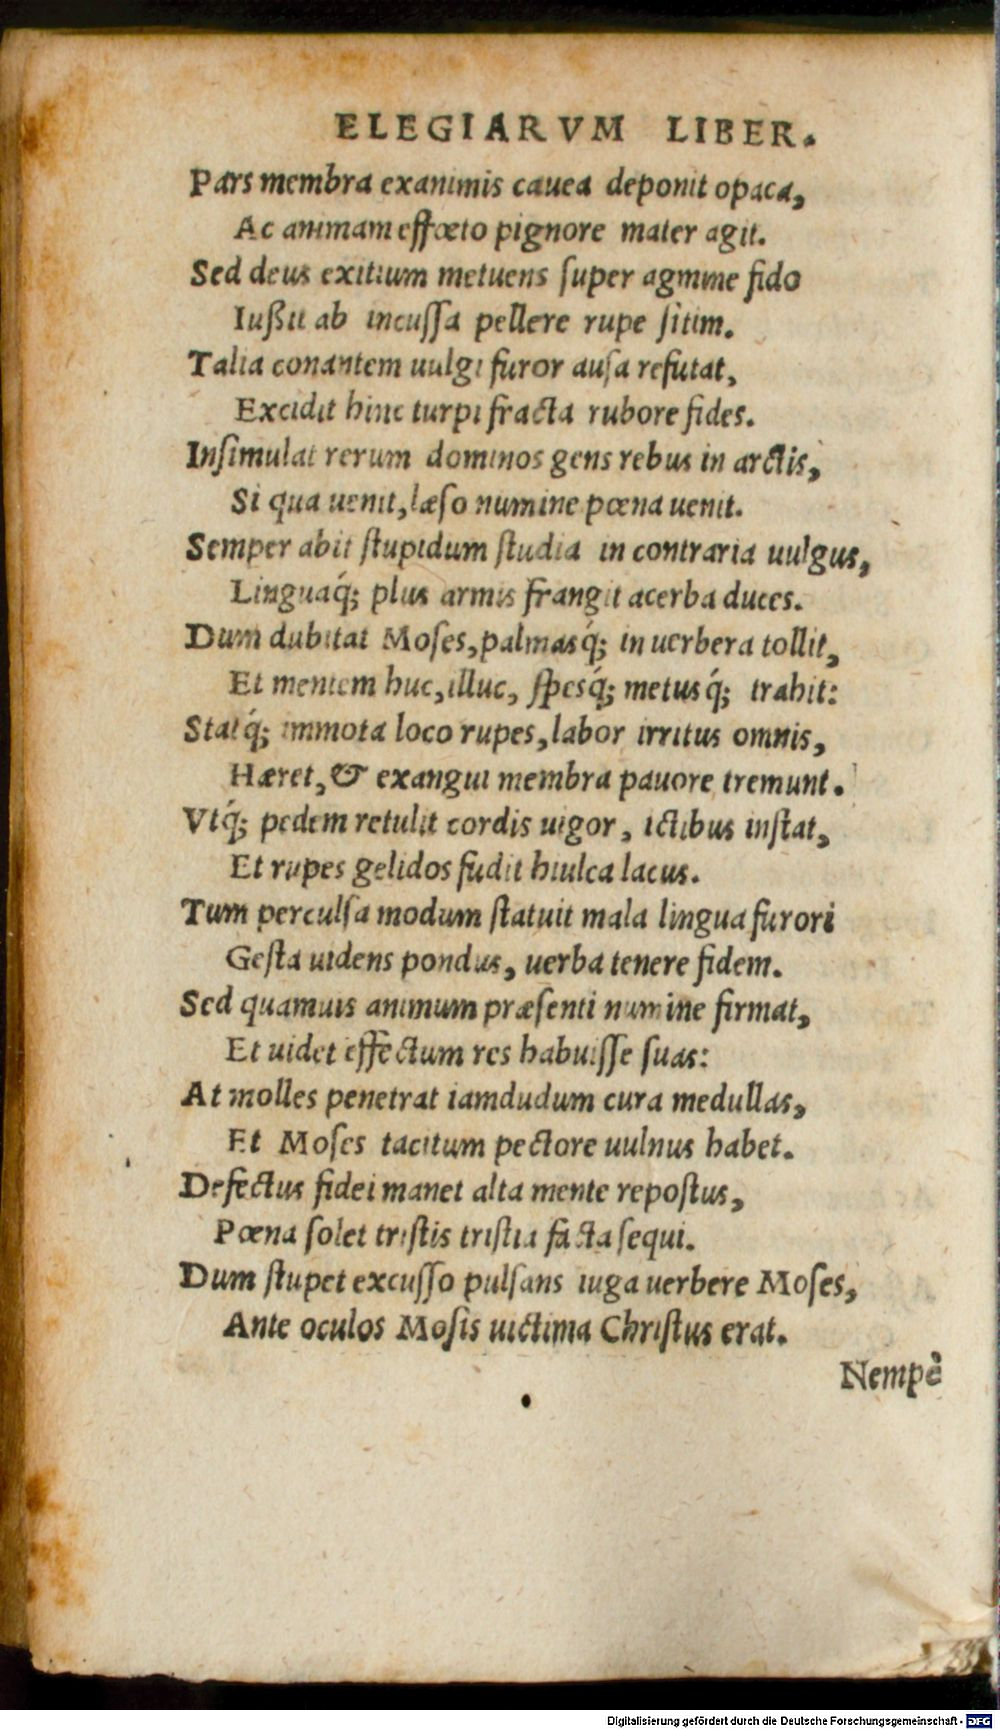 ELEGIARVM LIBER.
Pars membra exanimis cauea deponit opaca,
Ac animam effœto pignore mater agit.
Sed deus exitium metuens ſuper agmine fido
Iußit ab incuſſa pellere rupe ſitim.
Talia conantem uulgi furor auſa refutat,
Excidit hinc turpi fracta rubore fides.
Inſimulat rerum dominos gens rebus in arctis,
Si qua uenit, læſo numine pœna uenit.
Semper abit ſtupidum ſtudia in contraria uulgus,
Linguaq́; plus armis frangit acerba duces.
Dum dubitat Moſes, palmasq́; in uerbera tollit,
Et mentem huc, illuc, ſpesq́; metusq́; trahit:
Statq́; immota loco rupes, labor irritus omnis,
Hæret, & exangui membra pauore tremunt.
Vtq́; pedem retulit cordis uigor, ictibus inſtat,
Et rupes gelidos fudit hiulca lacus.
Tum perculſa modum ſtatuit mala lingua furori
Geſta uidens pondus, uerba tenere fidem.
Sed quamuis animum præſenti numine firmat,
Et uidet effectum res habuiſſe ſuas:
At molles penetrat iamdudum cura medullas,
Et Moſes tacitum pectore uulnus habet.
Defectus fidei manet alta mente repoſtus,
Pœna ſolet triſtis triſtia facta ſequi.
Dum ſtupet excuſſo pulſans iuga uerbere Moſes,
Ante oculos Moſis uictima Chriſtus erat.
Nempè
Digitalisierung gefördert durch die Deutsche Forschungsgemeinschaft - DFG